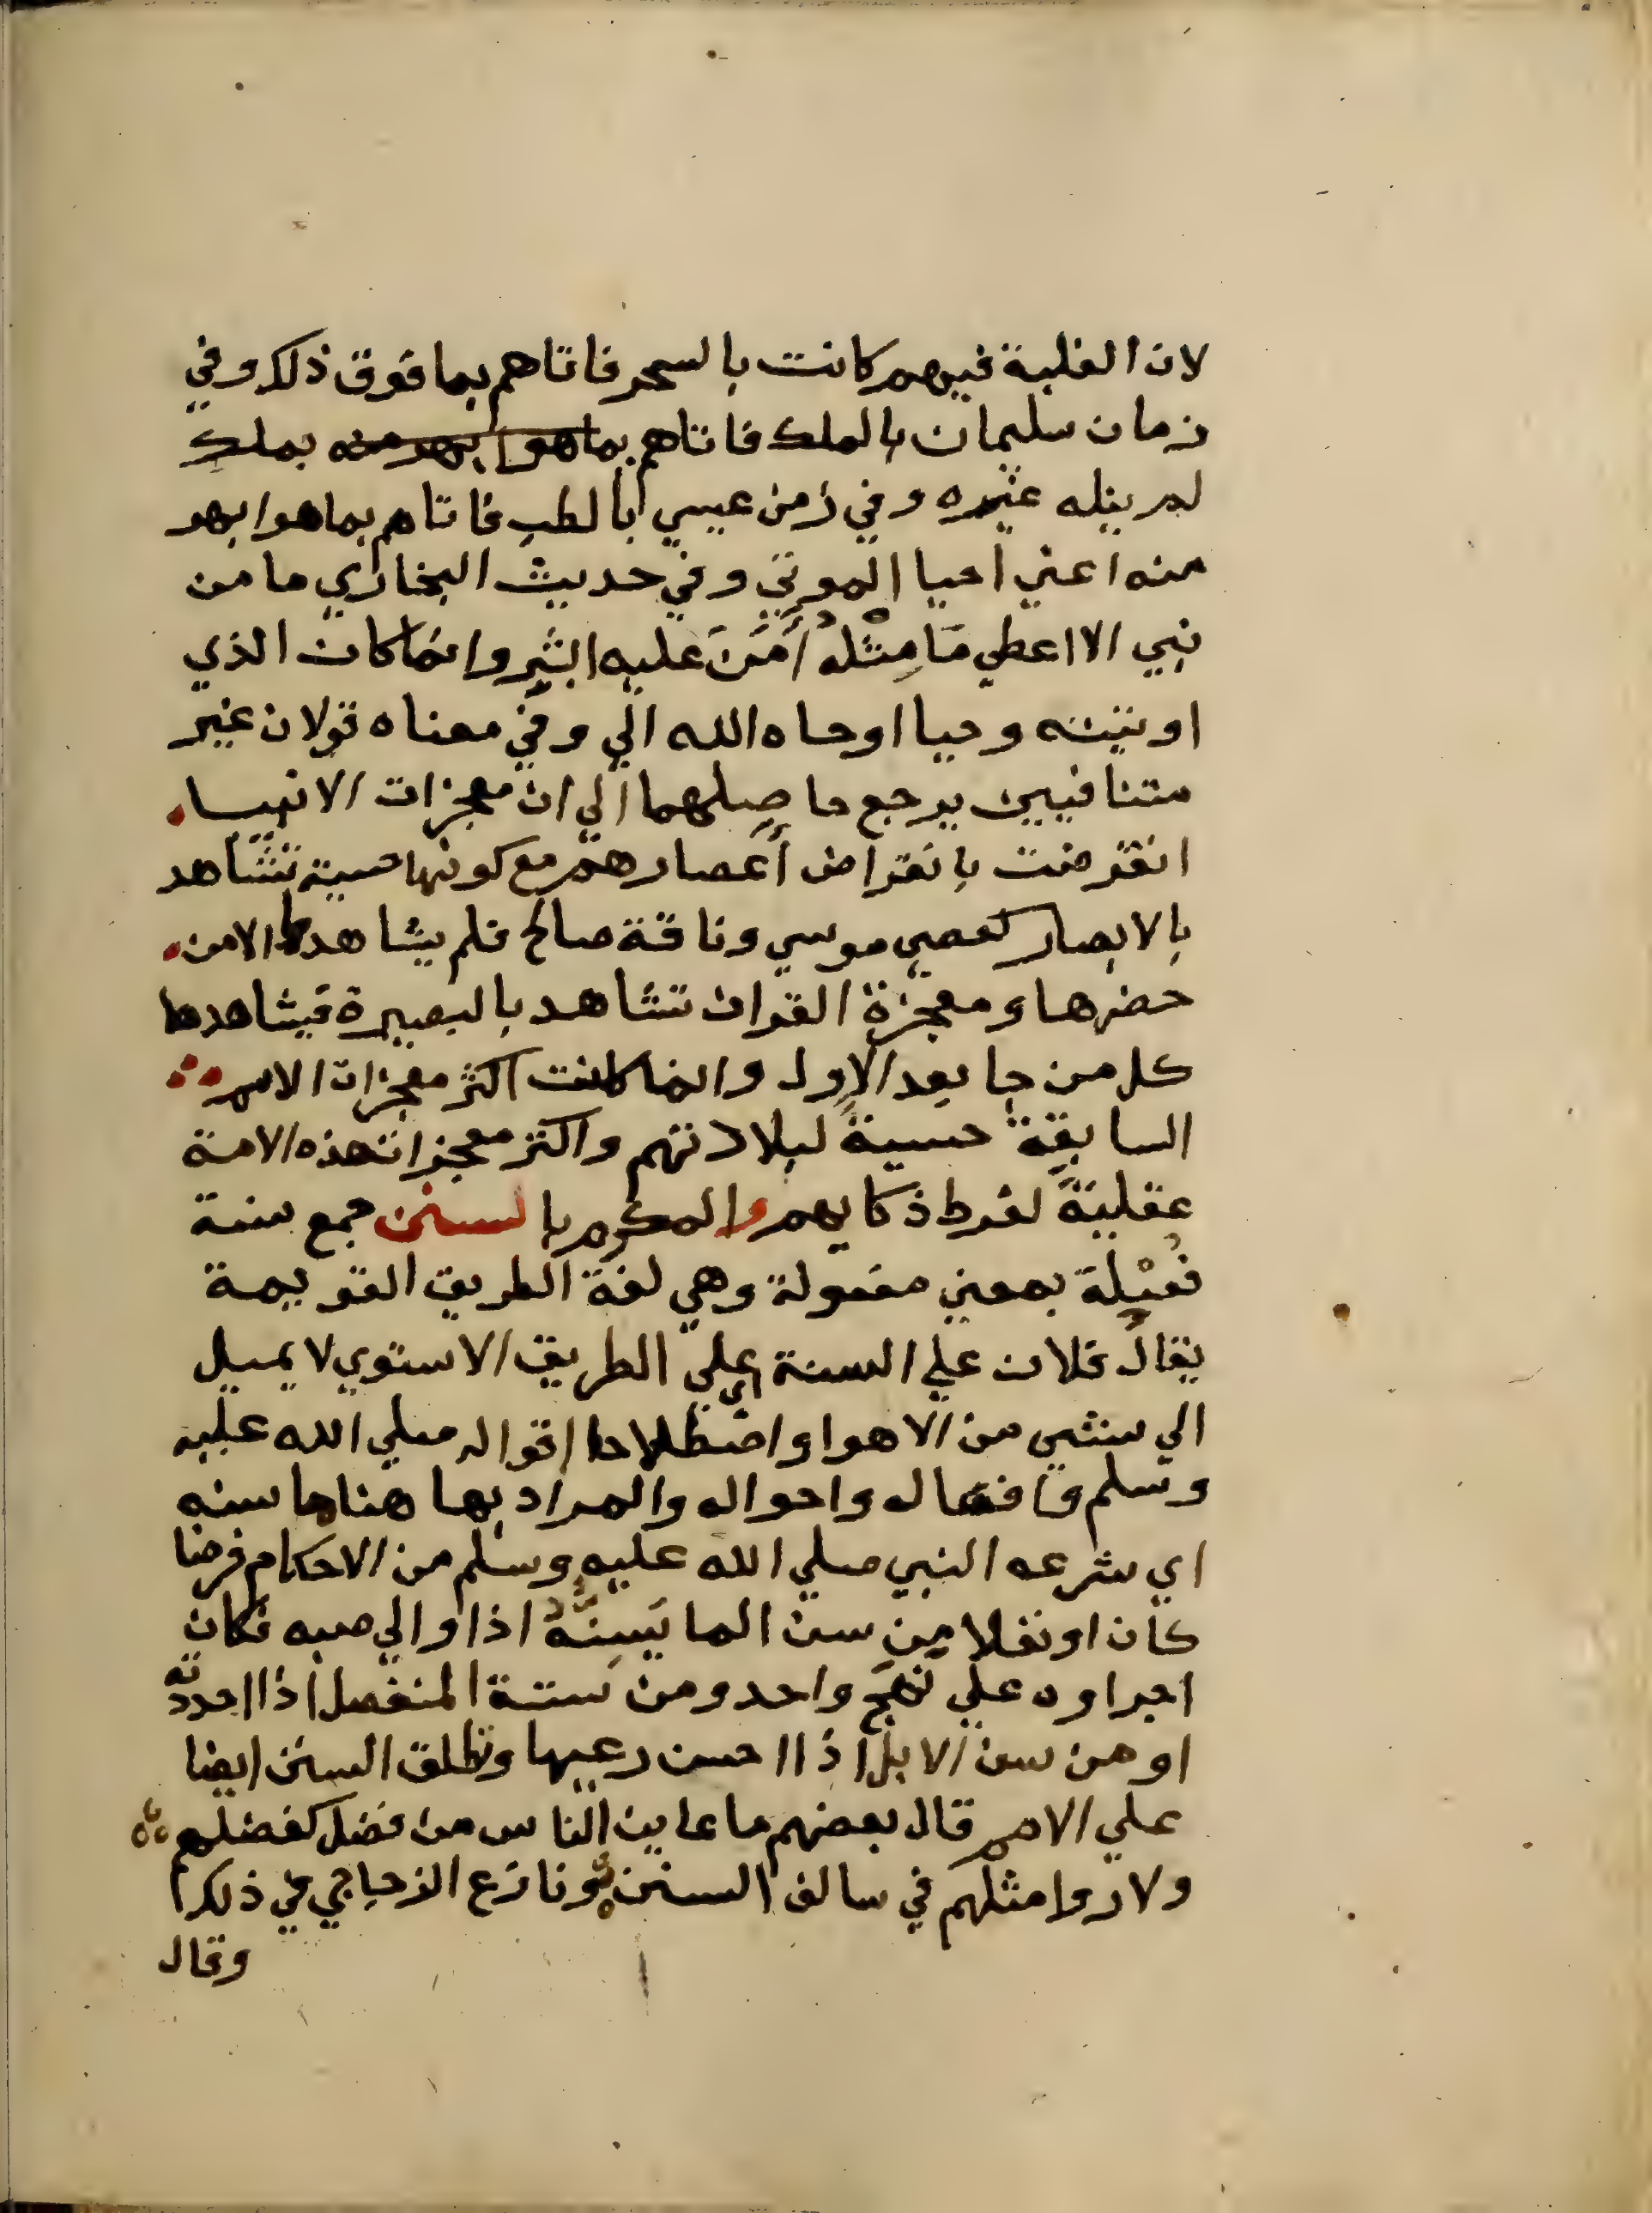 لان الغلبة فيهم كانت بالسحر فاتاهم بما فوق ذلك وفي
زمان سليمان بالملك فاتاهم بما هو ابهر منه بملك
لم ينله غيره وفي زمن عيسي بالطب فاتاهم بما هو ابهر
منه اعني احيا الموتي وفي حديث البخاري ما من
نبي الا اعطي مَا مِثْلهُ اَمَنَ عليه البشر وانما كان الذي
اوتيته وحيا اوحاه الله الي وفي معناه قولان غير
متنافيين يرجع حاصلهما الي ان معجزات الانبيا
انقرضت بانقراض أعصارهم مع كونها حسية تشاهد
بالابصار كعصي موسي وناقة صالح فلم يشاهدها الا من
حضرها ومعجزة القران تشاهد بالبصيرة فيشاهدها
كل من جا بعد الاول وانما كانت اكثر معجزات الامم
السابقة حسيةً لبلادتهم واكثر معجزات هذه الامة
عقليةً لفرط ذكايهم والمكرم بالسنن جمع سنة
فُعْلة بمعني مفعولة وهي لغة الطريق القويمة
يقال فلان علي السنة اي علي الطريق الاستوي لا يميل
الي شي من الاهوا واصطلاحا اقواله صلي الله عليه
وسلم وافعاله واحواله والمراد بها هنا ما سنه
اي شرعه النبي صلي الله عليه وسلم من الاحكام فرضا
كان او نفلا مِن سن الما يَسِنُّهُ اذا والي صبه فكان
اجراوه علي نهج واحد ومن سننة المنفصل اذا احددته
او من سن الابل اذا احسن رعيها وتطلق السنن ايضا
علي الامم قال بعضهم ما عاين الناس من فضل كفضلهم
ولا روا مثلهم في سالف السنن ونازع الزجاجي في ذلك
وقال